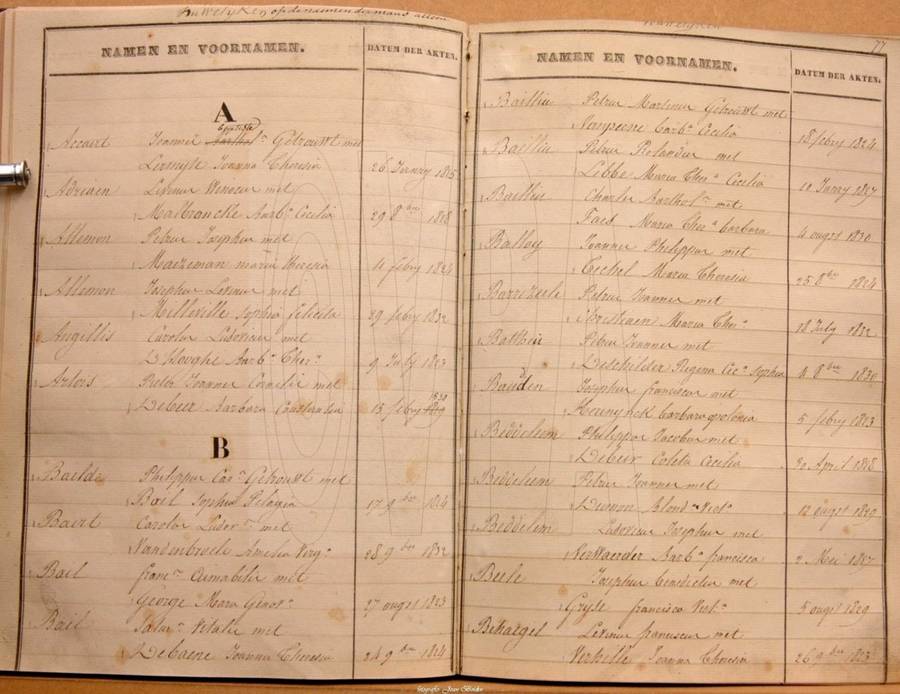 Huwelyken op de naemen der mans alleen
NAMEN EN VOORNAMEN.
DATUM DER AKTEN.
A
baptiste
Accart Joannes Barthol.ˢ Getrouwt met
Lermyte Joanna Theresia 26 January 1815
Adriaen Livinus met
Malbrancke Barb.ª Cecilia 29 8bre 1818
Allemon Petrus Josephus met
Maezeman maria theresia 4 febry 1824
Allemon Josephus Livinus met
Melleville Sophia felicita 29 febry 1832
Angillis Carolus Ludovicus met
Dhooghe Barb.ª Ther.ª 9 July 1803
Artois Pieter Joannes Cornelis met
1830
Debeer Barbara 15 febry 1819
B
Baelde Philippus Getrouwt met
Bail Sophia Pelagia 17 9bre 1814
Baert Carolus Ludov.ˢ met
Vandenbroele Amelia Virg.ª 28 9bre 1832
Bail fran.ˢ met
George Maria Genov.ª 27 augst 1823
Bail Vitalis met
Debaene Joanna Theresia 24 9bre 1814
77
NAMEN EN VOORNAMEN.
DATUM DER AKTEN.
Bailliu Petrus Martinus Getrouwt met
Barb.ª Cecilia 18 febry 1824
Bailliu Petrus Rolandus met
Libbe Maria Ther.ª Cecilia 10 Janry 1817
Bailliu Charles Barthol.ˢ met
Faes Maria Ther.ª barbara 4 augst 1830
Balloy Joannes Philippus met
Maria Theresia 25 8bre 1824
Barrezeele Petrus Joannes met
Christiaen Maria Ther.ª 18 July 1832
Battheu Petrus Joannes met
Deschilder Regina Cec.ª Sophia 4 8bre 1830
Bauden Josephus franciscus met
Hennynck barbara apolonia 5 febry 1813
Beddeleem Philippus Jacobus met
Debeer Coleta Cecilia 30 April 1818
Beddeleem Petrus Joannes met
Blond.ª Vict.ª 12 augst 1819
Beddelem Ludovicus Josephus met
Verwaerder Barb.ª francisca 2 Mei 1817
Beele Josephus benedictus met
Gryse francisca Vict.ª 5 augst 1829
Behaegel Livinus franciscus met
Verhille Joanna Theresia 26 9bre 1823